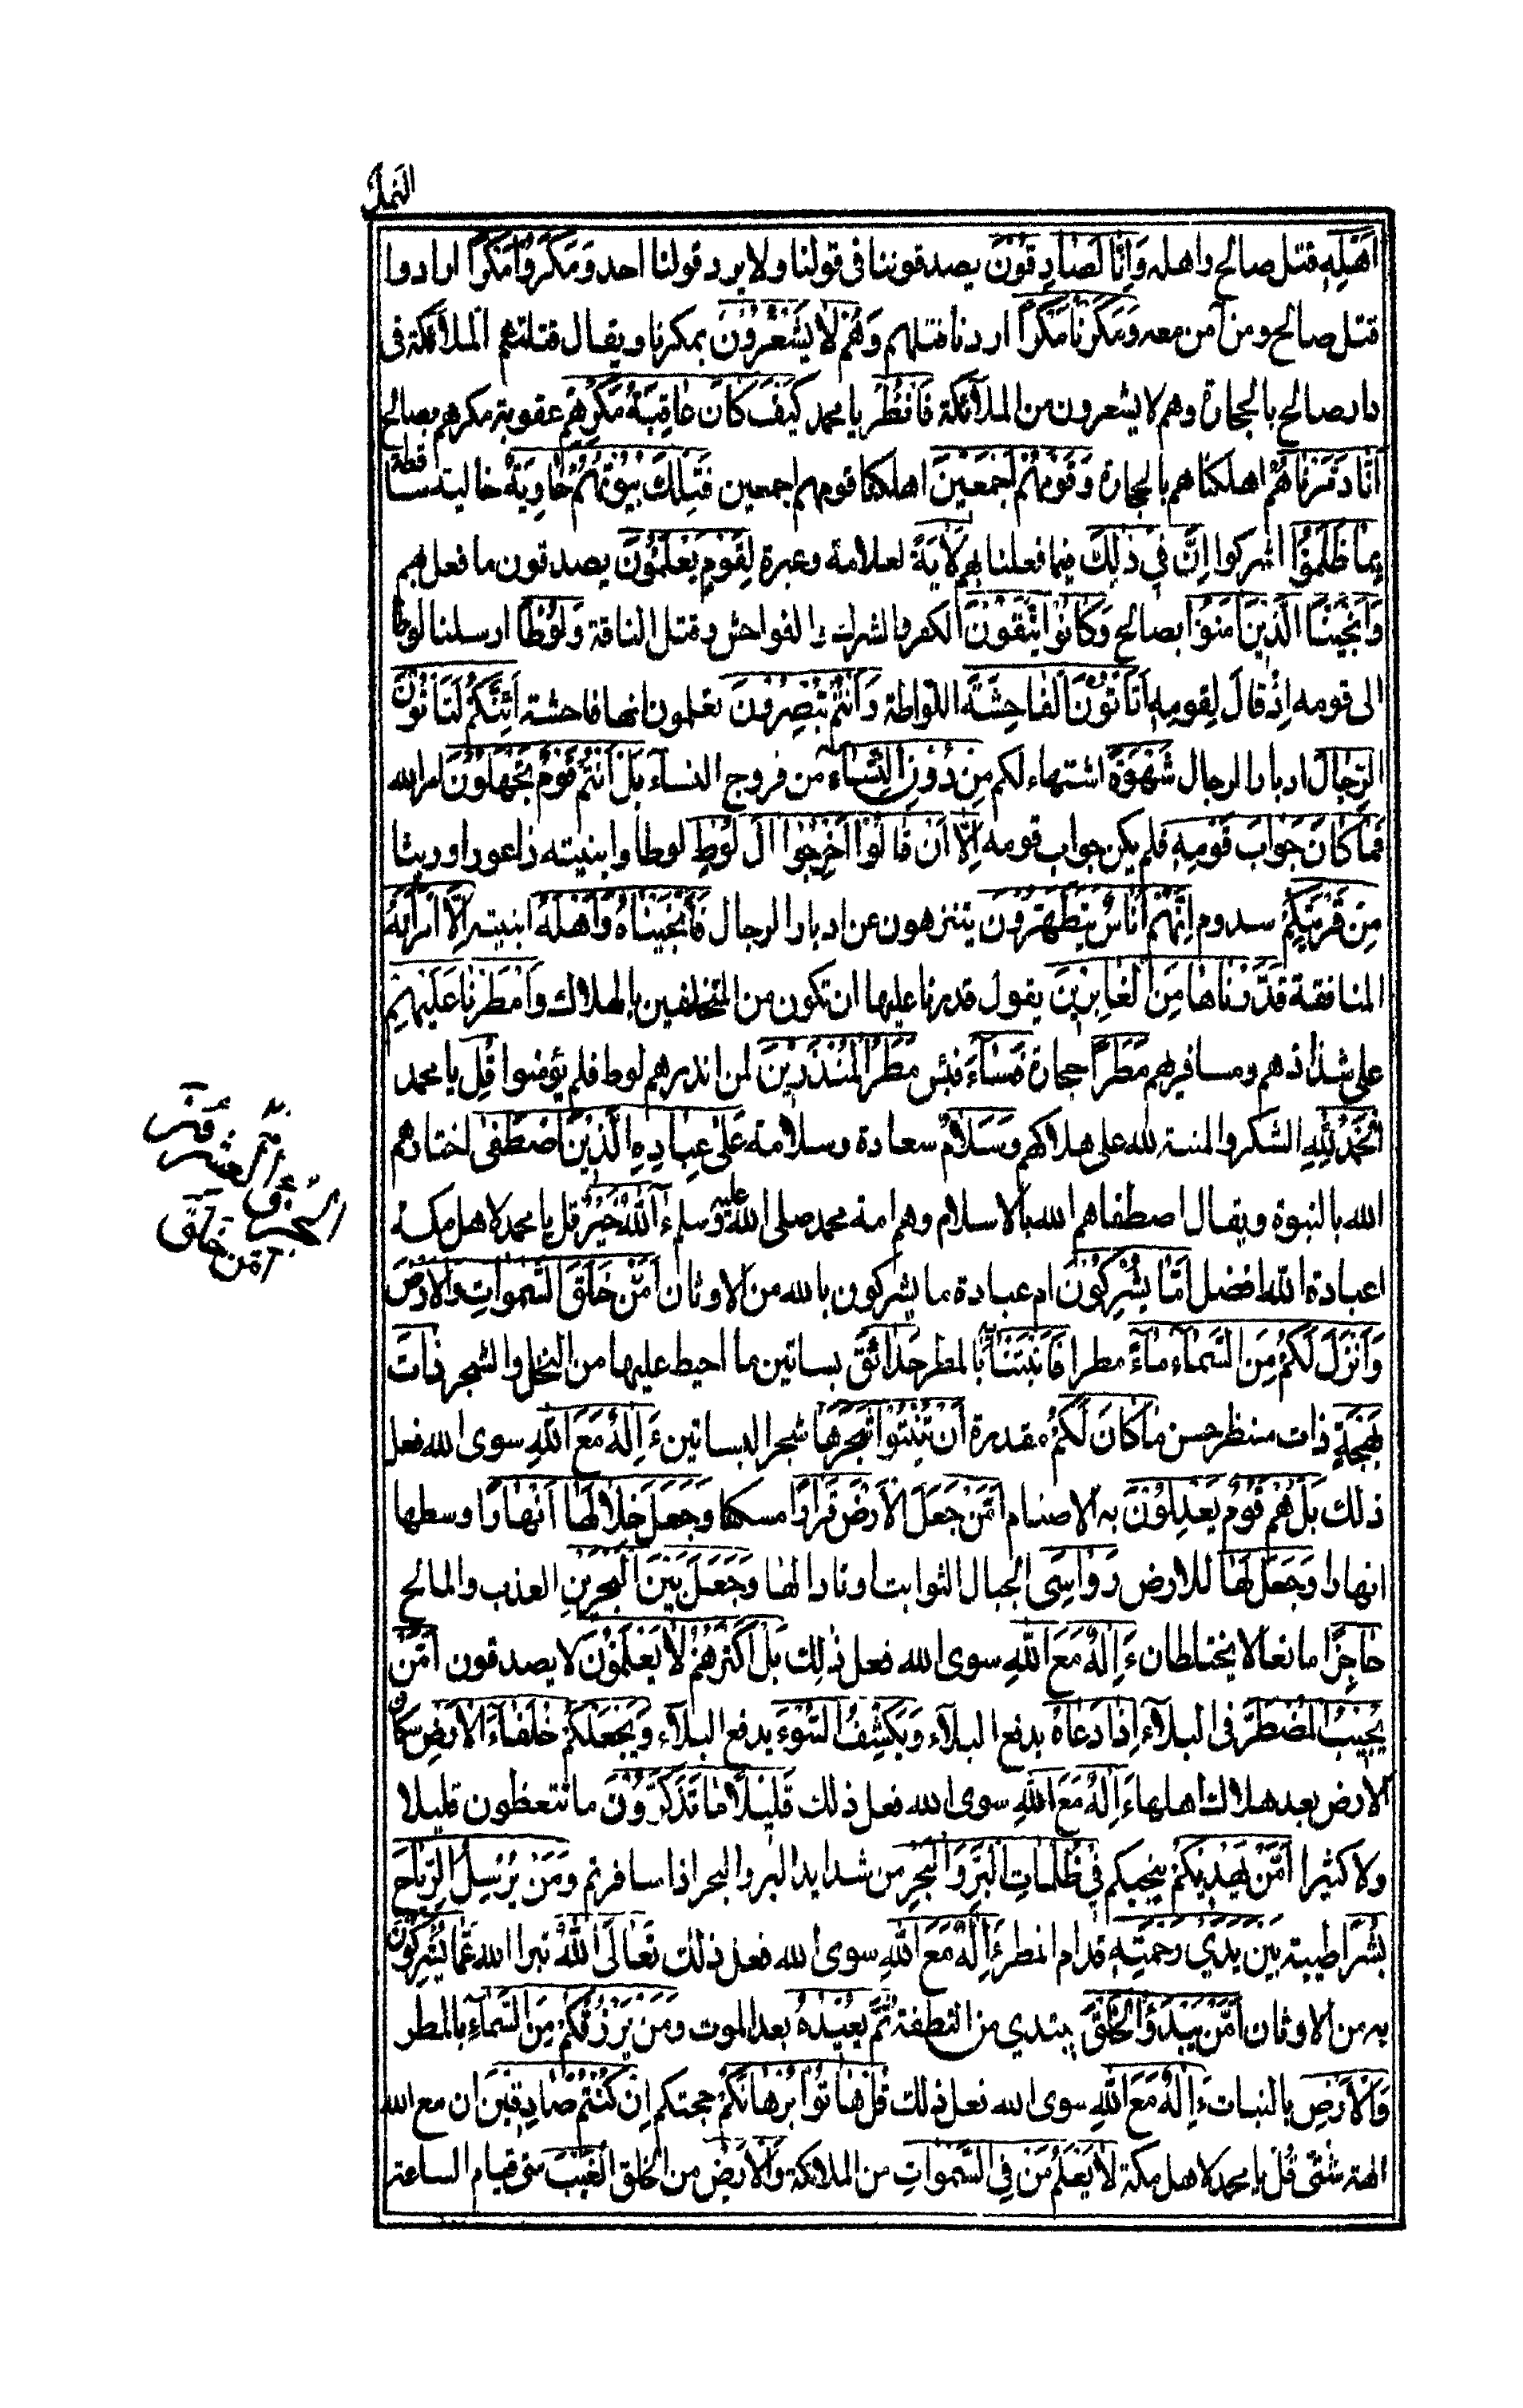 النمل
اَهْلِهٖ قتل صالح واهله وَاِنَّا لَصَادِقُونَ يصدقوننا فى قولنا ولا يرد قولنا احد وَمَكَرُوا مَكْرًا ارادوا
قتل صالح ومن آمن معه وَمَكَرْنَا مَكْرًا اردنا قتلهم وَهُمْ لَا يَشْعُرُونَ بمكرنا ويقال قتلتهم الملآئكة فى
دار صالح بالحجارة وهم لا يشعرون من الملآئكة فَانْظُرْ يا محمد كَيْفَ كَانَ عَاقِبَةُ مَكْرِهِمْ عقوبة مكرهم بصالح
اَنَّا دَمَّرْنَاهُمْ اهلكناهم بالحجارة وَقَوْمَهُمْ اَجْمَعِينَ اهلكنا قومهم اجمعين فَتِلْكَ بُيُوتُهُمْ خَاوِيَةً خالية ساقطة
بِمَا ظَلَمُوا اشركوا اِنَّ فِي ذٰلِكَ فيما فعلنا بهم لَاٰيَةً لعلامة وعبرة لِقَوْمٍ يَعْلَمُونَ يصدقون ما فعل بهم
وَاَنْجَيْنَا الَّذِينَ اٰمَنُوا بصالح وَكَانُوا يَتَّقُونَ الكفر والشرك والفواحش وقتل الناقة وَلُوطًا ارسلنا لوطا
الى قومه اِذْ قَالَ لِقَوْمِهٖ اَتَأْتُونَ الْفَاحِشَةَ اللواطة وَاَنْتُمْ تُبْصِرُونَ تعلمون انها فاحشة اَئِنَّكُمْ لَتَأْتُونَ
الرِّجَالَ ادبار الرجال شَهْوَةً اشتهاء لكم مِنْ دُونِ النِّسَاءِ من فروج النساء بَلْ اَنْتُمْ قَوْمٌ تَجْهَلُونَ امر الله
فَمَا كَانَ جَوَابَ قَوْمِهٖ فلم يكن جواب قومه اِلَّا اَنْ قَالُوا اَخْرِجُوا اٰلَ لُوطٍ لوطا وابنيته زاعورا وريثا
مِنْ قَرْيَتِكُمْ سدوم اِنَّهُمْ اُنَاسٌ يَتَطَهَّرُونَ يتنزهون عن ادبار الرجال فَاَنْجَيْنَاهُ وَاَهْلَهُ ابنيته اِلَّا امْرَاَتَهُ
المنافقة قَدَّرْنَاهَا مِنَ الْغَابِرِينَ يقول قدرنا عليها ان تكون من المتخلفين بالهلاك وَاَمْطَرْنَا عَلَيْهِمْ
على شذاذهم ومسافريهم مَطَرًا حجارة فَسَاءَ فبئس مَطَرُ الْمُنْذَرِينَ لمن انذرهم لوط فلم يؤمنوا قُلِ يا محمد
الْحَمْدُ لِلّٰهِ الشكر والمنة لله على هلاكهم وَسَلَامٌ سعادة وسلامة عَلٰى عِبَادِهِ الَّذِينَ اصْطَفٰى اختارهم
الله بالنبوة ويقال اصطفاهم الله بالاسلام وهم امة محمد صلى الله عليه وسلم ءَاٰللّٰهُ خَيْرٌ قل يا محمد لاهل مكة
اعبادة الله افضل اَمَّا يُشْرِكُونَ ام عبادة ما يشركون بالله من الاوثان اَمَّنْ خَلَقَ السَّمٰوَاتِ وَالْاَرْضَ
وَاَنْزَلَ لَكُمْ مِنَ السَّمَاءِ مَاءً مطرا فَاَنْبَتْنَا بِهٖ بالمطر حَدَائِقَ بساتين ما احيط عليها من النخل والشجر ذَاتَ
بَهْجَةٍ ذات منظر حسن مَا كَانَ لَكُمْ مقدرة اَنْ تُنْبِتُوا شَجَرَهَا شجر البساتين ءَاِلٰهٌ مَعَ اللّٰهِ سوى الله فعل
ذلك بَلْ هُمْ قَوْمٌ يَعْدِلُونَ به الاصنام اَمَّنْ جَعَلَ الْاَرْضَ قَرَارًا مسكنا وَجَعَلَ خِلَالَهَا اَنْهَارًا وسطها
انهارا وَجَعَلَ لَهَا للارض رَوَاسِيَ الجبال الثوابت اوتادا لها وَجَعَلَ بَيْنَ الْبَحْرَيْنِ العذب والمالح
حَاجِزًا مانعا لا يختلطان ءَاِلٰهٌ مَعَ اللّٰهِ سوى الله فعل ذلك بَلْ اَكْثَرُهُمْ لَا يَعْلَمُونَ لا يصدقون اَمَّنْ
يُجِيبُ الْمُضْطَرَّ فى البلآء اِذَا دَعَاهُ بدفع البلآء وَيَكْشِفُ السُّوءَ يدفع البلآء وَيَجْعَلُكُمْ خُلَفَاءَ الْاَرْضِ سكان
الارض بعد هلاك اهلها ءَاِلٰهٌ مَعَ اللّٰهِ سوى الله فعل ذلك قَلِيلًا مَا تَذَكَّرُونَ ما تتعظون قليلا
ولا كثيرا اَمَّنْ يَهْدِيكُمْ ينجيكم فِي ظُلُمَاتِ الْبَرِّ وَالْبَحْرِ من شدايد البر والبحر اذا سافرتم وَمَنْ يُرْسِلُ الرِّيَاحَ
بُشْرًا طيبة بين يَدَيْ رَحْمَتِهٖ قدام المطر ءَاِلٰهٌ مَعَ اللّٰهِ سوى الله فعل ذلك تَعَالَى اللّٰهُ تبرا الله عَمَّا يُشْرِكُونَ
به من الاوثان اَمَّنْ يَبْدَؤُ الْخَلْقَ يبتدي من النطفة ثُمَّ يُعِيدُهُ بعد الموت وَمَنْ يَرْزُقُكُمْ مِنَ السَّمَاءِ بالمطر
وَالْاَرْضِ بالنبات ءَاِلٰهٌ مَعَ اللّٰهِ سوى الله فعل ذلك قُلْ هَاتُوا بُرْهَانَكُمْ حجتكم اِنْ كُنْتُمْ صَادِقِينَ ان مع الله
الهة شتى قُلْ يا محمد لاهل مكة لَا يَعْلَمُ مَنْ فِي السَّمٰوَاتِ من الملائكة وَالْاَرْضِ من الخلق الْغَيْبَ متى قيام الساعة
الجزؤ العشرون
امن خلق